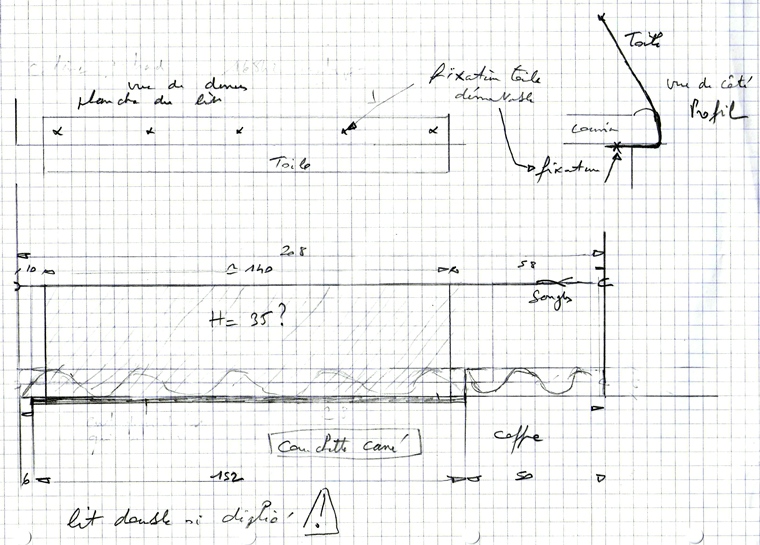 vue de dessus
planche du lit
fixation toile
démontable
Toile
vue de côté
Profil
Toile
fixation
208
10
≃ 140
58
Sangle
H= 35?
coffre
6
152
50
lit double si
!